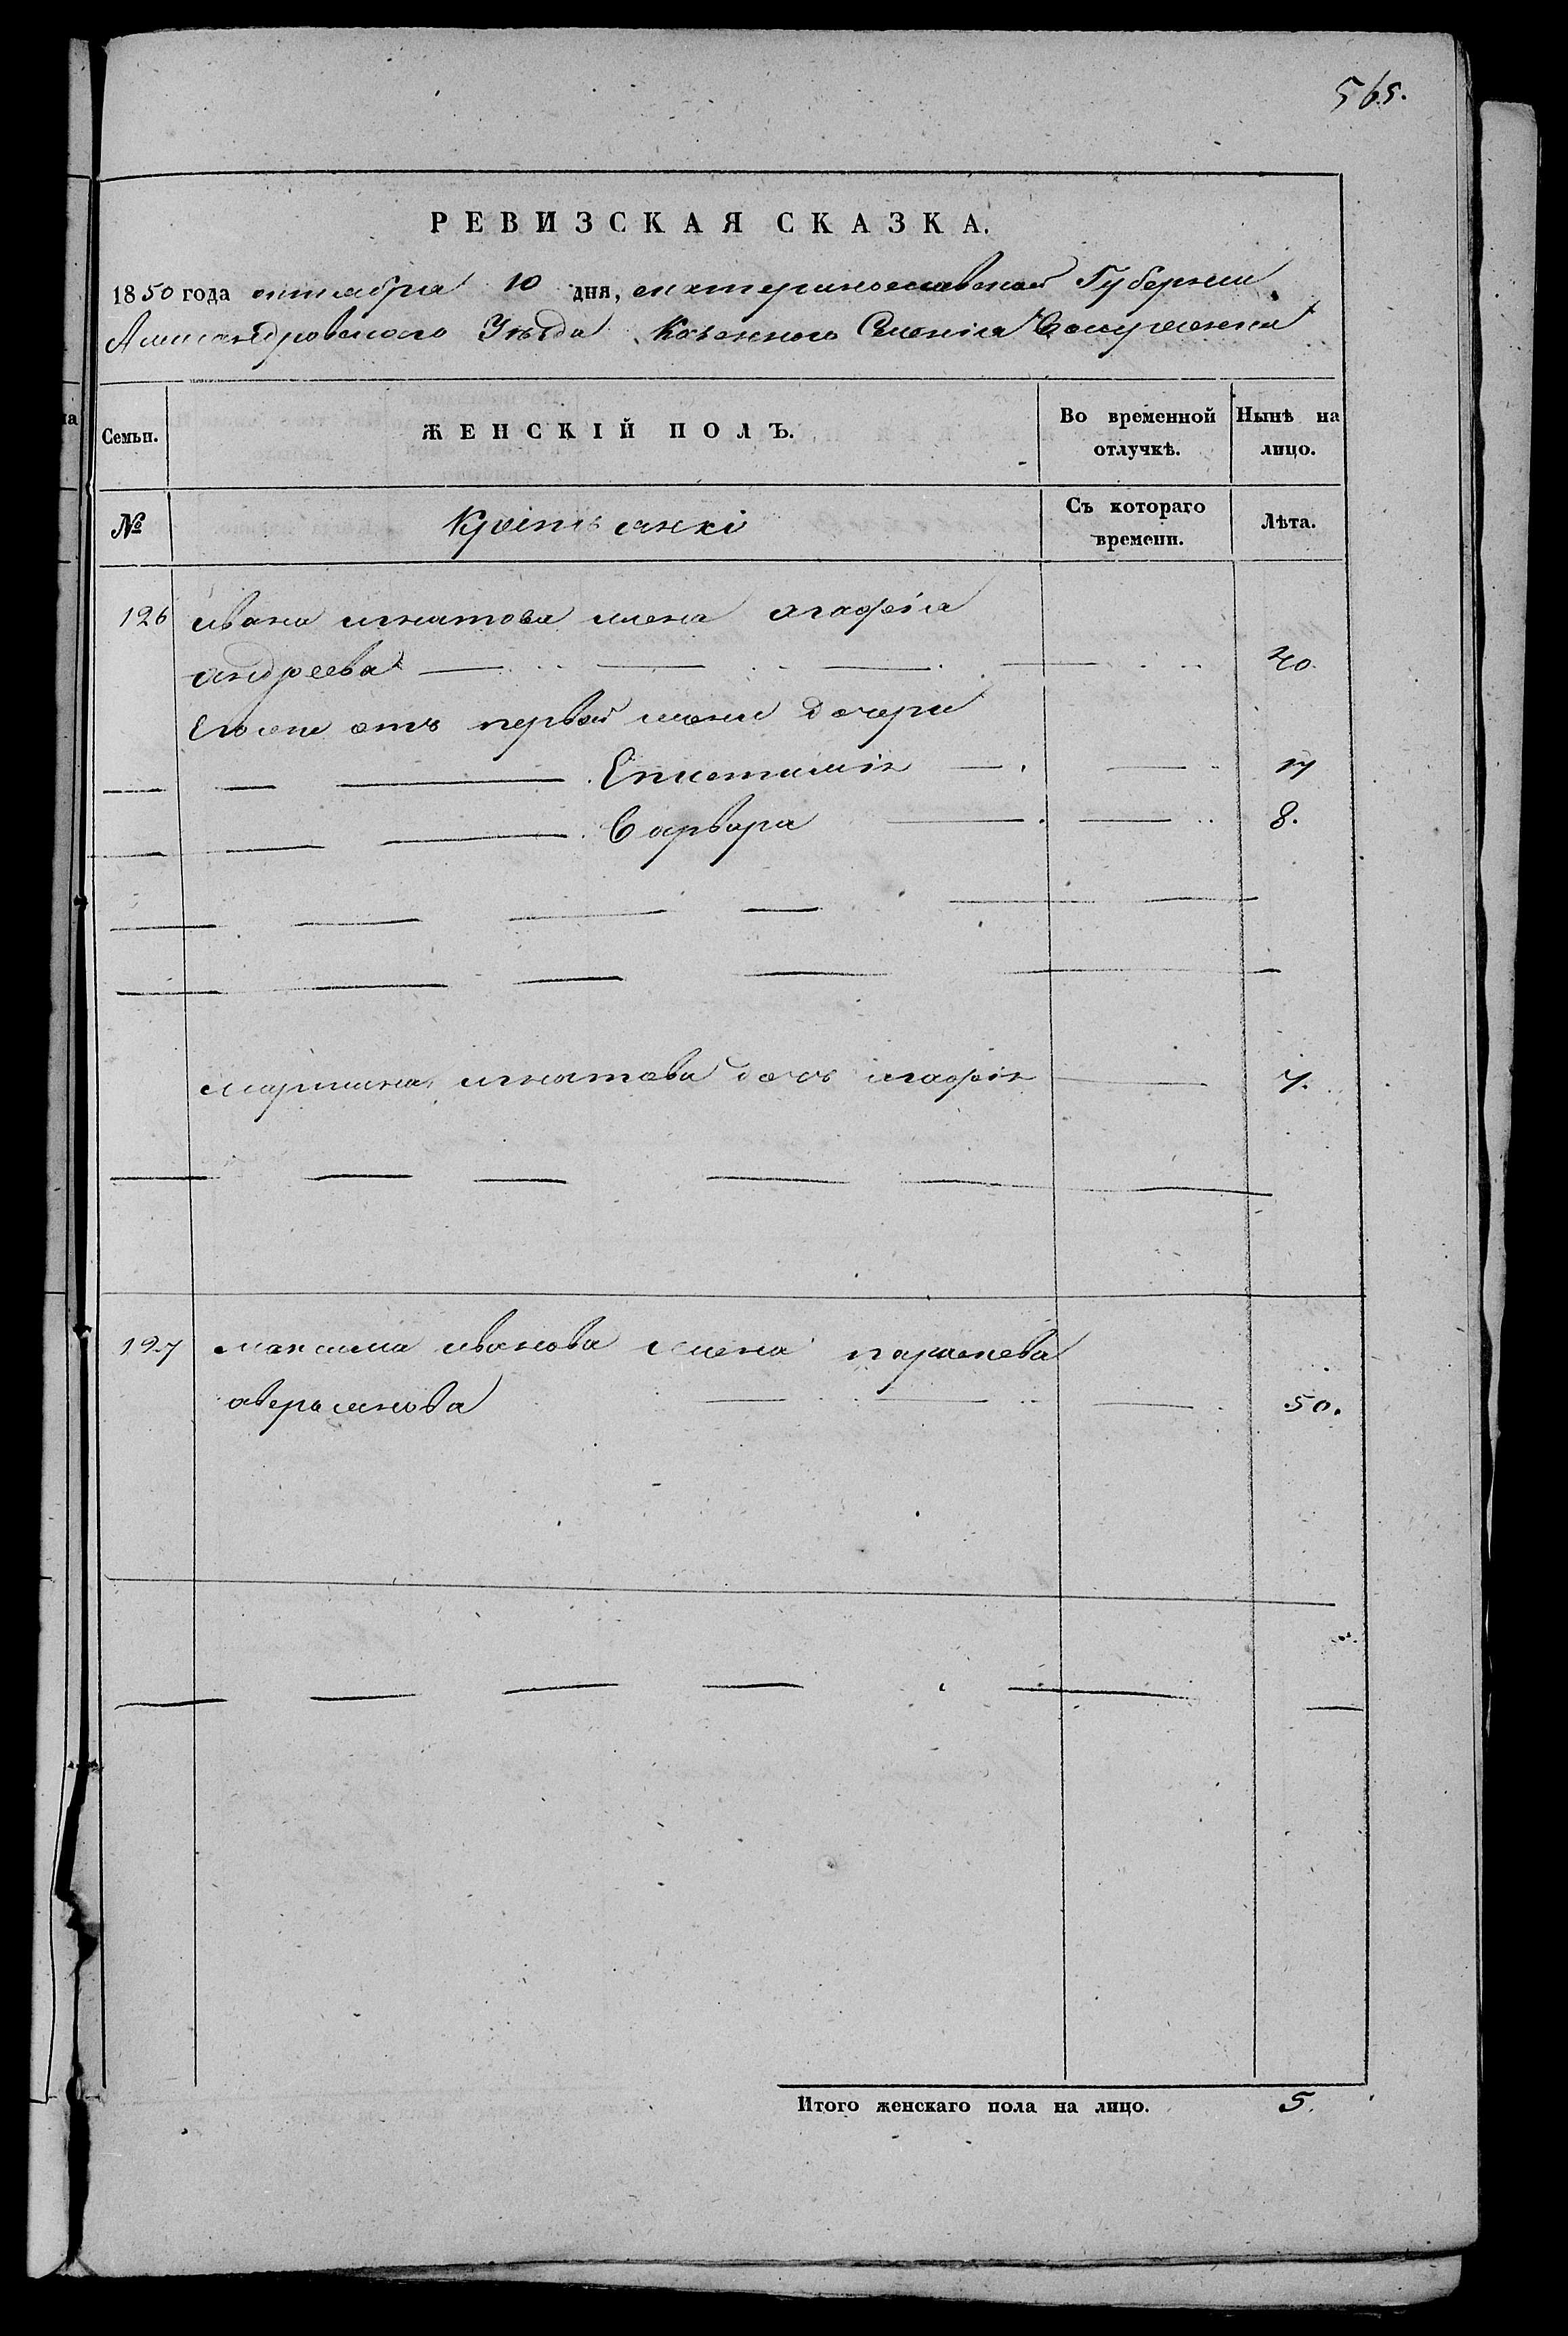 565.
РЕВИЗСКАЯ СКАЗКА.
1850 года октября 10 дня, екатеринославской Губернии
Александровского Уезда Казенного Селенія Воскресенки
Семьи. ЖЕНСКІЙ ПОЛЪ. Во временной отлучкѣ. Нынѣ на лицо.
№ Крестьянкі Съ котораго времени. Лѣта.
126 ивана игнатова жена агафія
андреева 40
Его же отъ первой жени дочери
Епистимія 17
Варвара 8.
мартина игнатова дочь агафія 7.
127 максима иванова жена параскева
аверьянова 50.
Итого женскаго пола на лицо. 5.